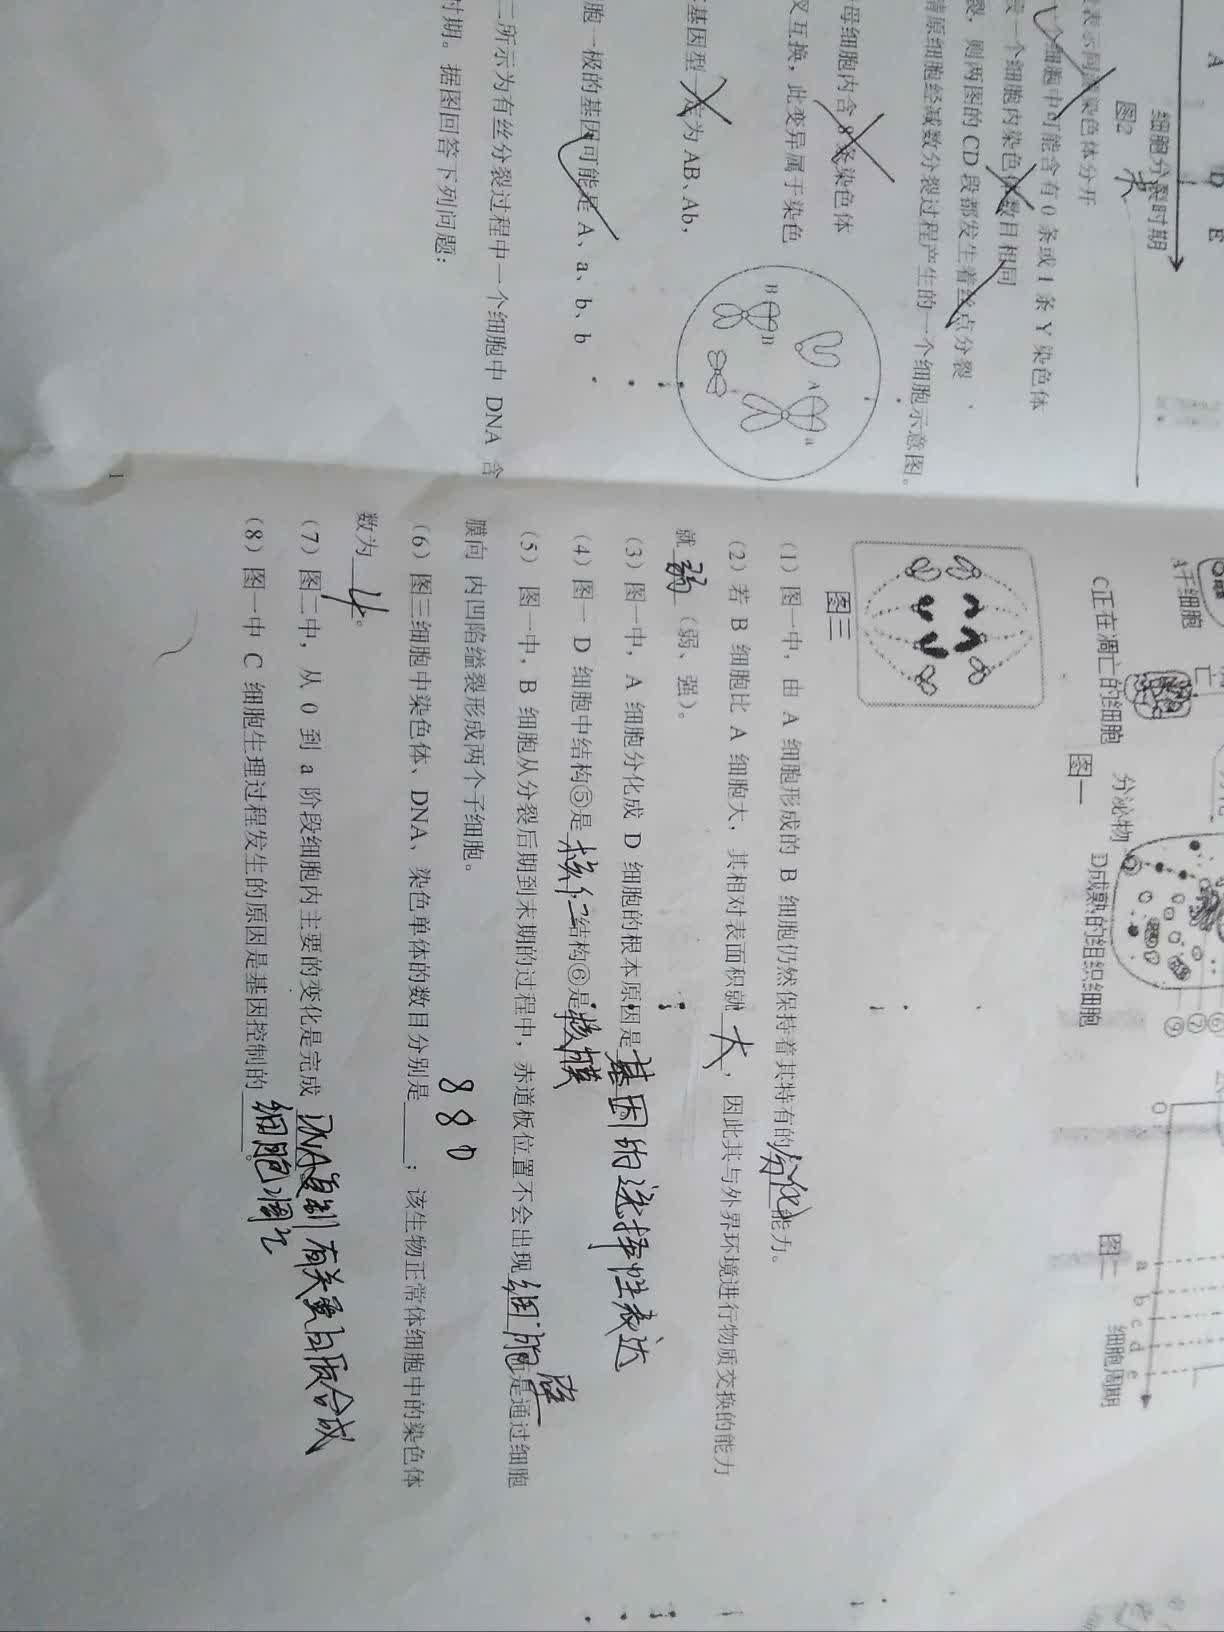 A
D
E
细胞分裂时期
图2
表示同源染色体分开
个细胞中可能含有0条或1条Y染色体
一个细胞内染色体数目相同
裂，则两图的CD段都发生着丝点分裂
精原细胞经减数分裂过程产生的一个细胞示意图。
母细胞内含8条染色体
叉互换，此变异属于染色
基因型一定为AB、Ab，
胞一极的基因可能是A、a、b、b
二所示为有丝分裂过程中一个细胞中DNA含
时期。据图回答下列问题：
B
B
A
a
1
干细胞
C正在凋亡的细胞
图一
分泌物
D成熟的组织细胞
⑦
0
a
b
c
d
e
细胞周期
图二
图三
(1)图一中，由A细胞形成的B细胞仍然保持着其特有的分化能力。
(2)若B细胞比A细胞大，其相对表面积就大，因此其与外界环境进行物质交换的能力
就弱（弱、强）。
(3)图一中，A细胞分化成D细胞的根本原因是基因的选择性表达
(4)图一D细胞中结构⑤是核仁结构⑥是核膜
(5)图一中，B细胞从分裂后期到末期的过程中，赤道板位置不会出现细胞是通过细胞
膜向内凹陷缢裂形成两个子细胞。
8 8 0
(6)图三细胞中染色体、DNA、染色单体的数目分别是____；该生物正常体细胞中的染色体
数为4。
(7)图二中，从0到a阶段细胞内主要的变化是完成DNA复制有关蛋白质合成
(8)图一中C细胞生理过程发生的原因是基因控制的细胞凋亡。